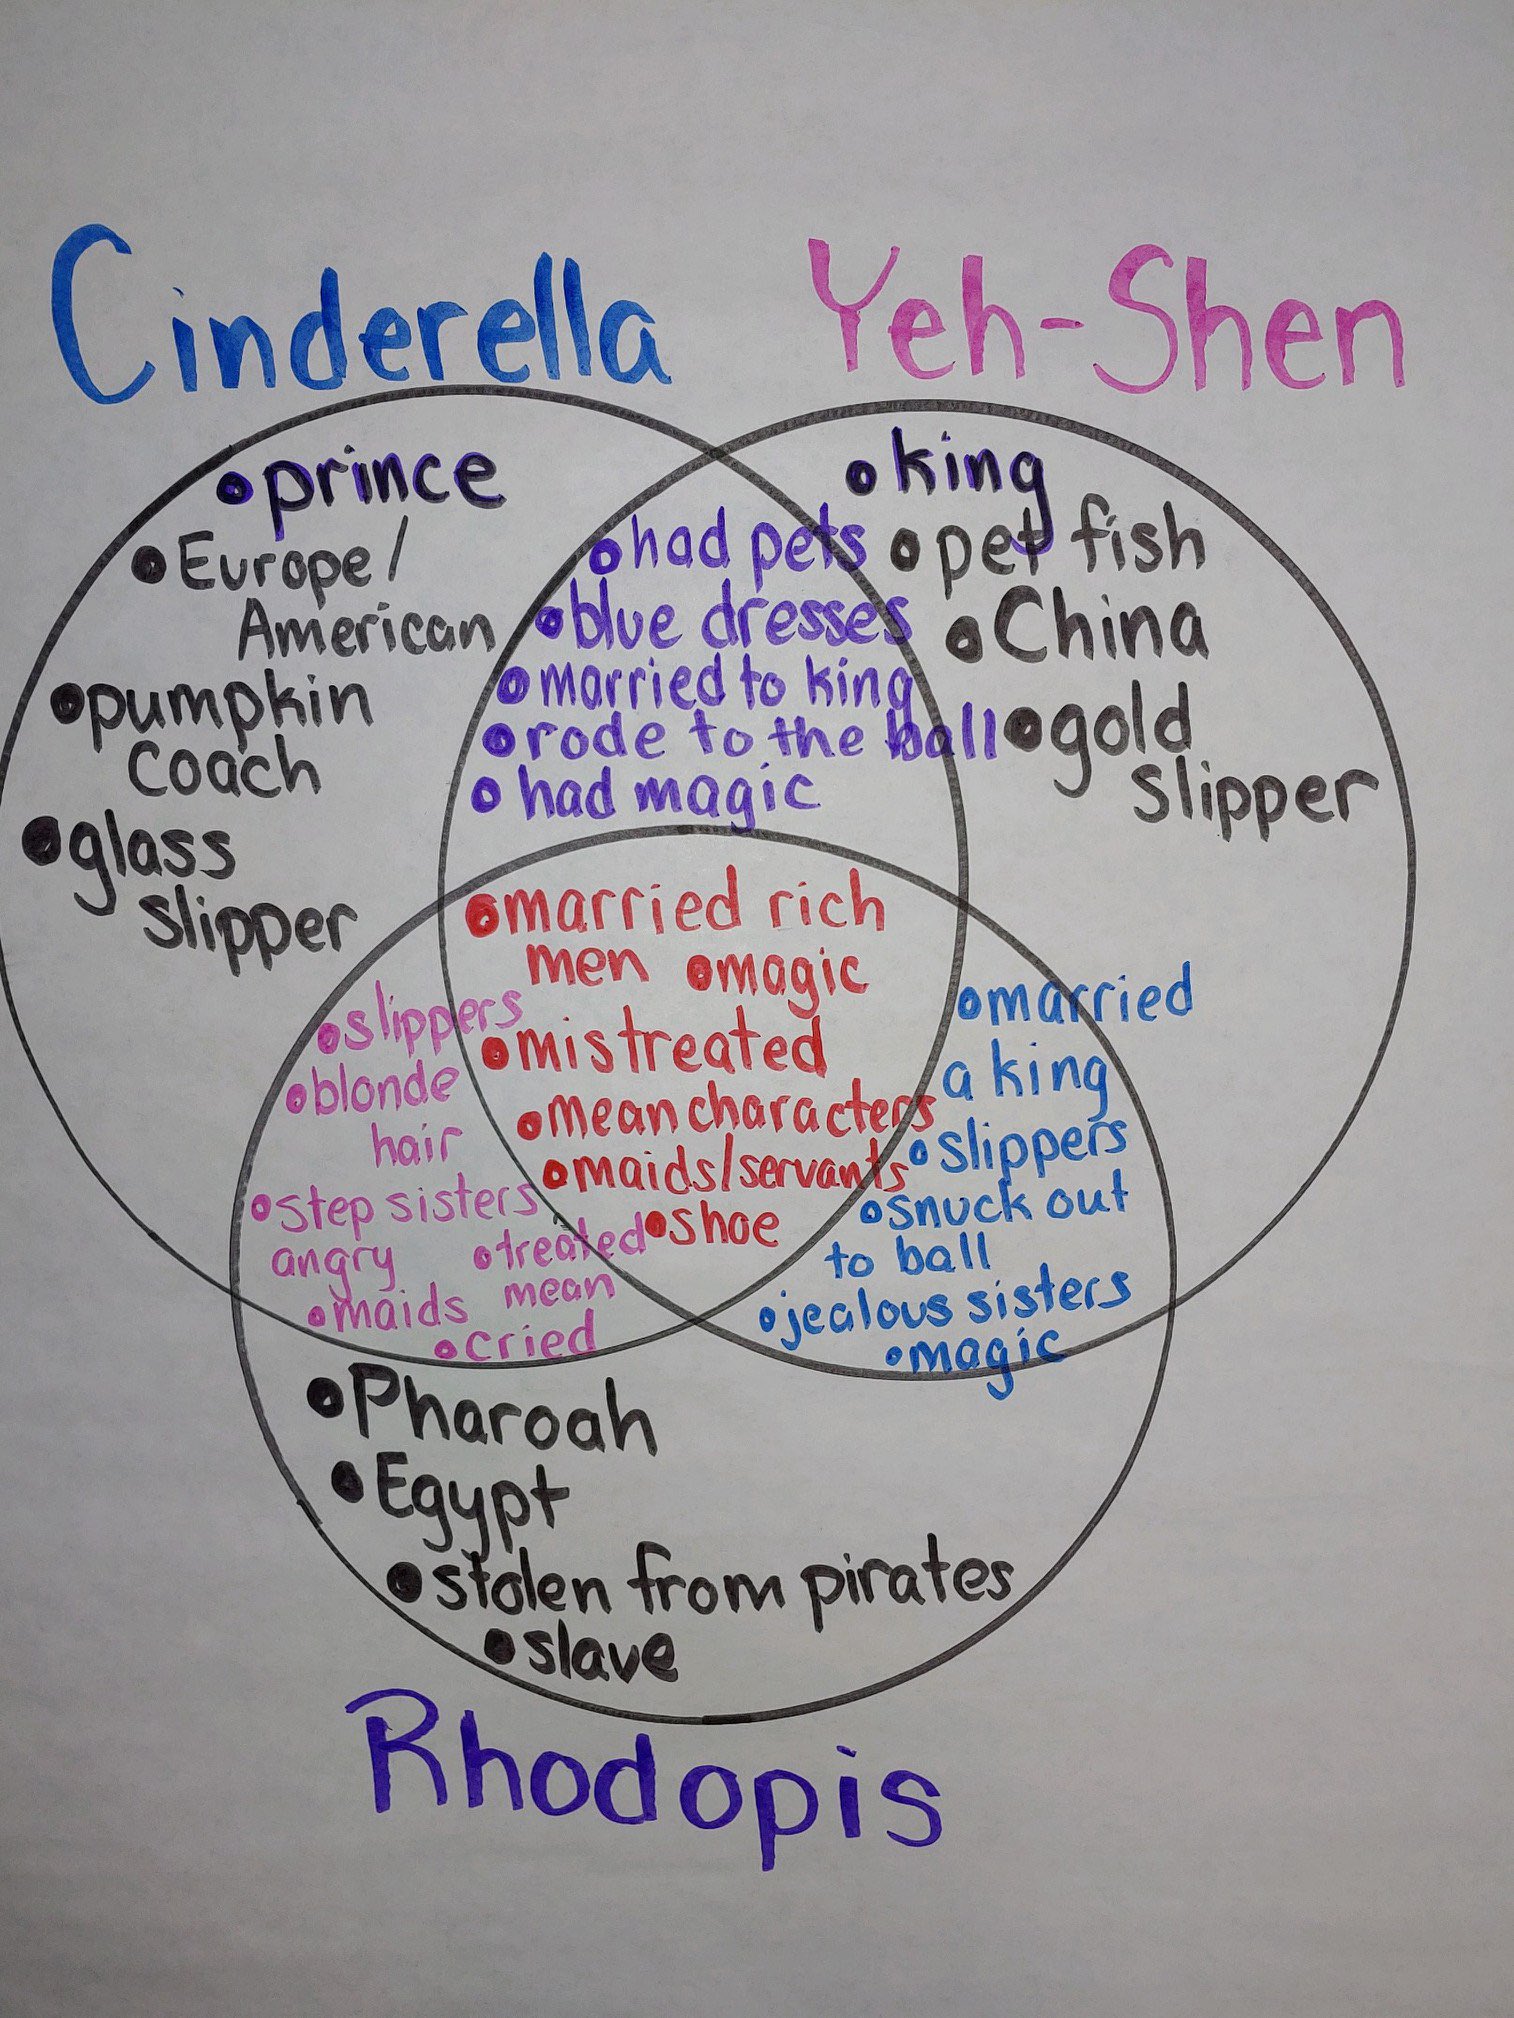 Cinderella
Yeh-Shen
• prince
• Europe/
American
• pumpkin
coach
• glass
slipper
• had pets
• blue dresses
• married to king
• rode to the ball
• had magic
• king
• pet fish
• China
• gold
slipper
• married rich
men • magic
• mistreated
• mean characters
• maids/servants
• shoe
• slippers
• blonde
hair
• step sisters
angry
• treated
mean
• maids
• cried
• married
a king
• slippers
• snuck out
to ball
• jealous sisters
• magic
• Pharoah
• Egypt
• stolen from pirates
• slave
Rhodopis